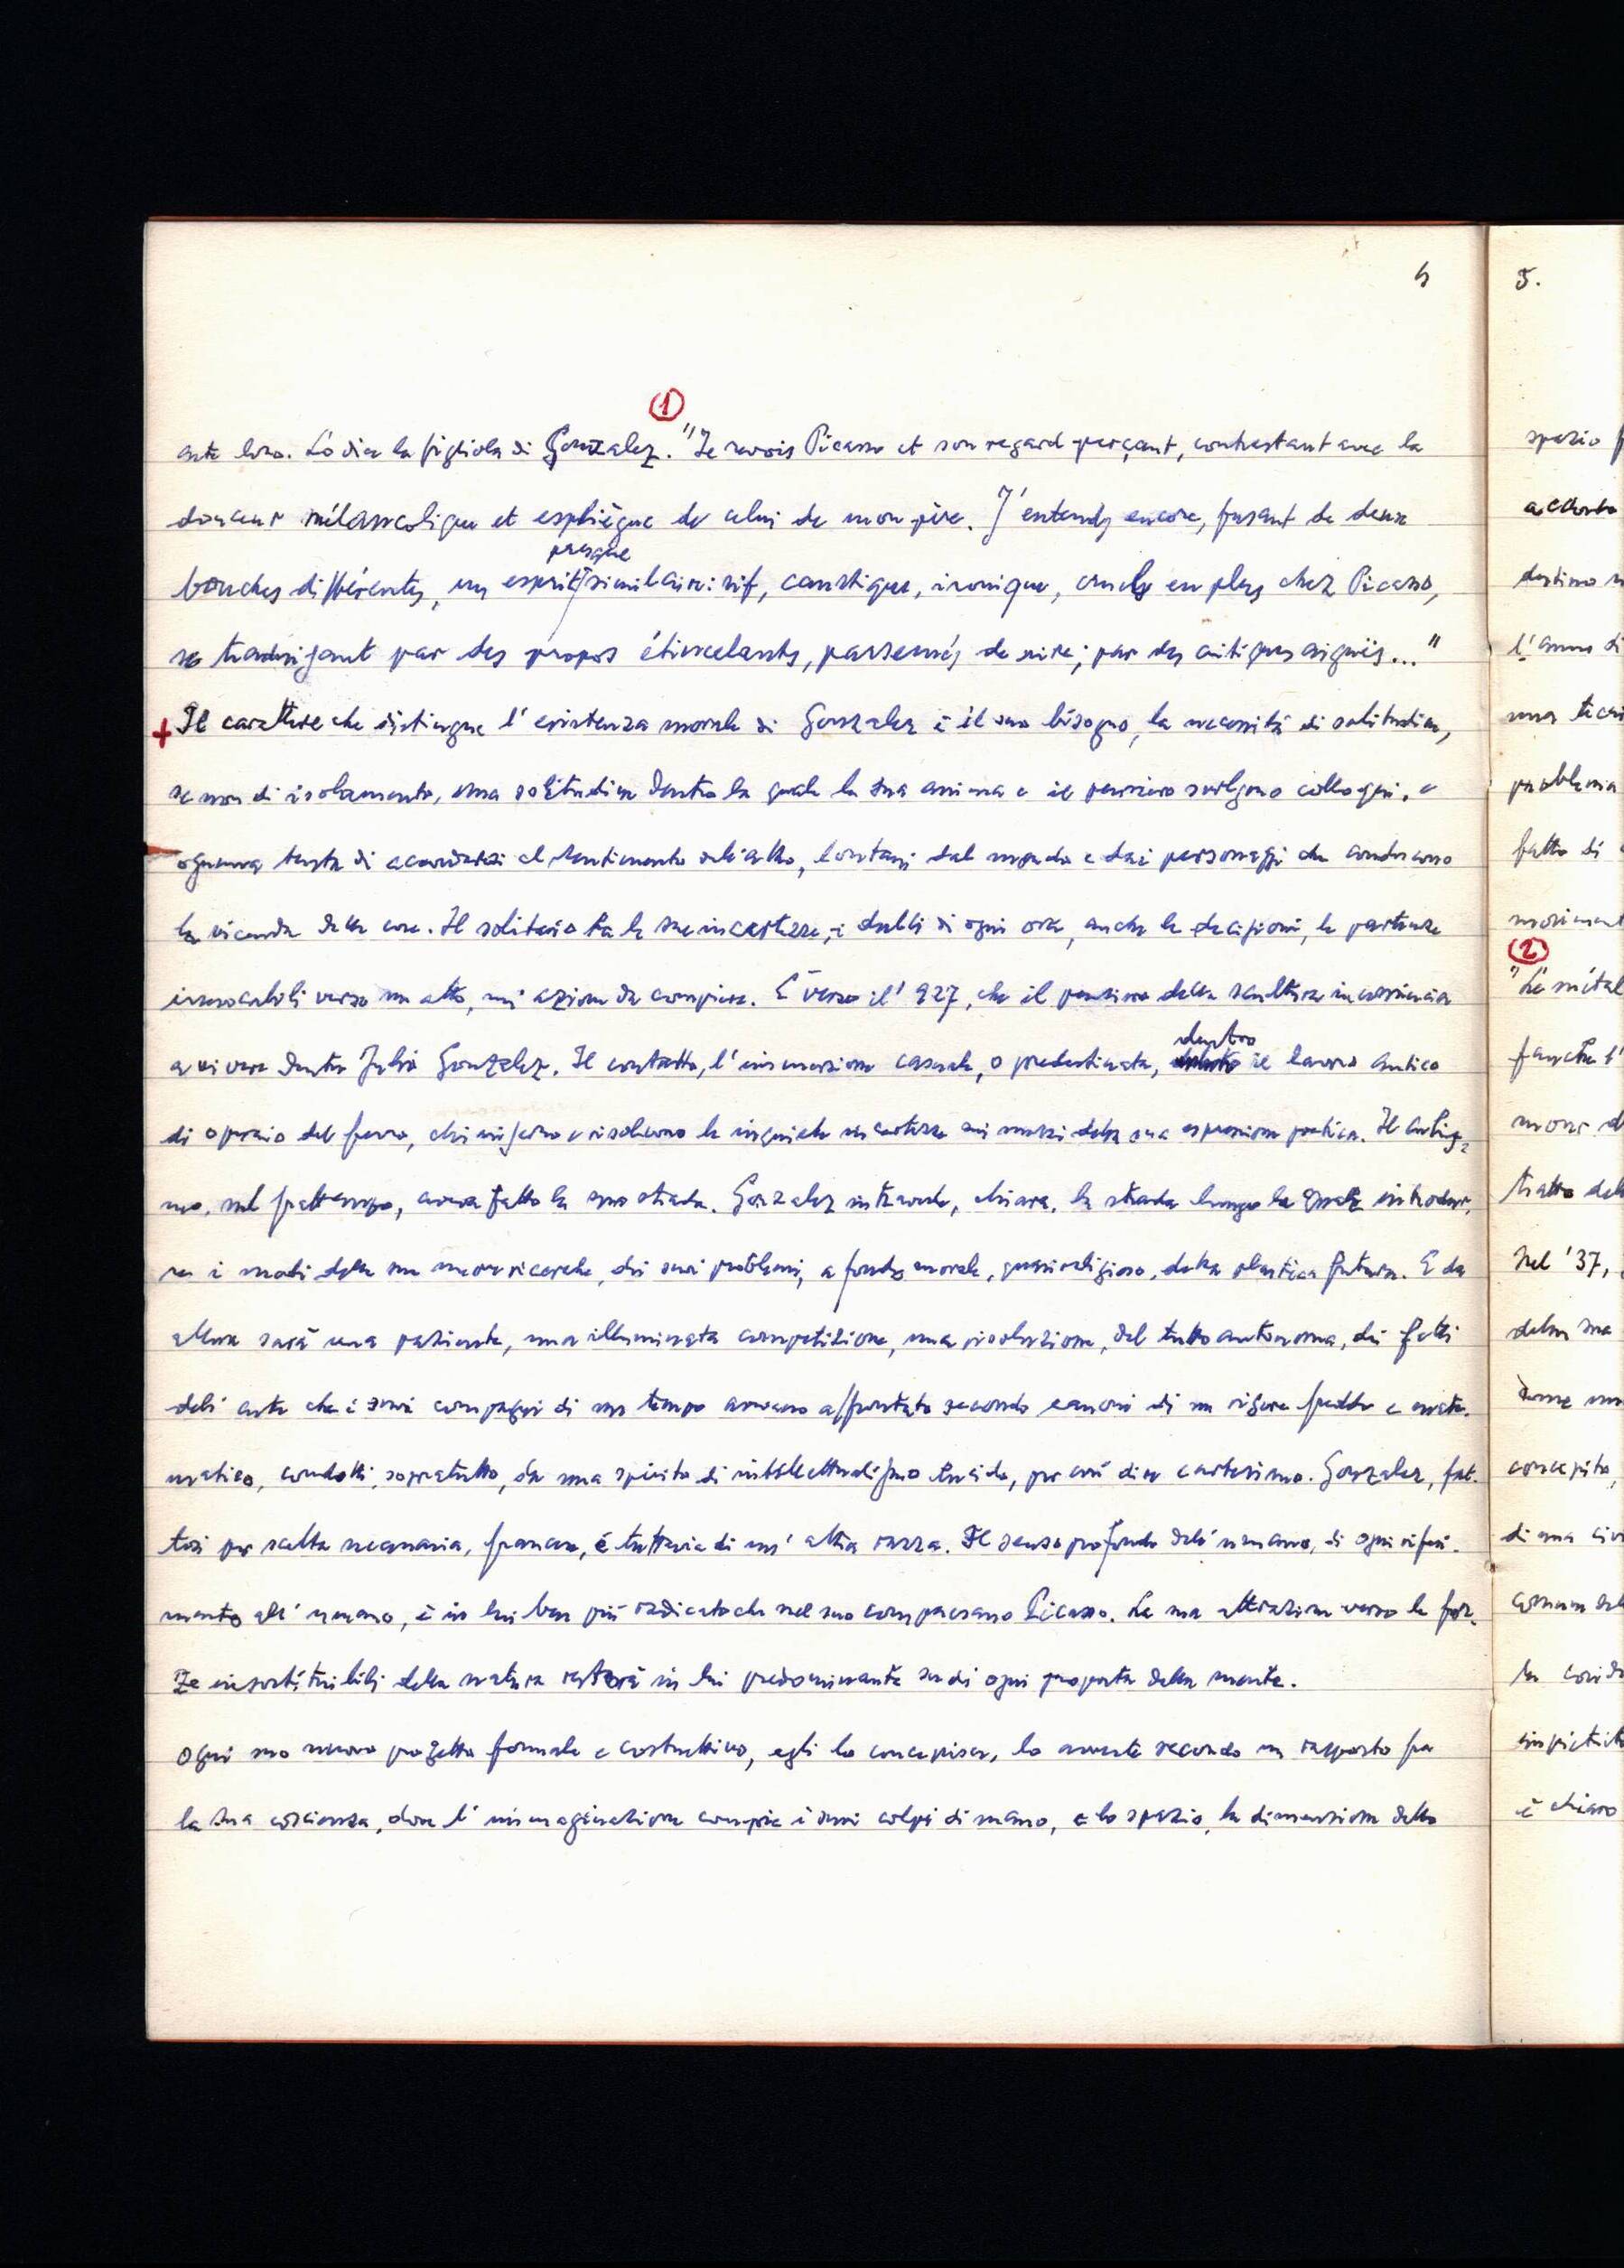 4
①
arte loro. Lo dice la figliola di Gonzalez. "Je revois Picasso et son regard perçant, contrastant avec la
douceur mélancolique et espliègue de celui de mon père. J'entends encore, fusant de deux
presque
bouches différentes, un esprit similaire: vif, caustique, ironique, cruels en plus chez Picasso,
se traduisant par des propos étincelants, parsemés de rire; par des critiques aiguïs..."
+ Il carattere che distingue l'esistenza morale di Gonzalez è il suo bisogno, la necessità di solitudine,
se non di isolamento, una solitudine dentro la quale la sua anima e il pensiero svolgono colloqui, e
ognuna tenta di accordarsi al sentimento dell'altro, lontani dal mondo e dai personaggi che conducono
la vicenda delle cose. Il solitario ha le sue incertezze, i dubbi di ogni ora, anche le decisioni, le partenze
irrevocabili verso un atto, un'azione da compiere. È verso il '927, che il pensiero della scultura incomincia
a vivere dentro Julio Gonzalez. Il contatto, l'immersione casuale, o predestinata, dentro il lavoro antico
di operaio del ferro, chiariscono e risolvono le inquiete incertezze sui mezzi della sua espressione poetica. Il cubis-
mo, nel frattempo, aveva fatto la sua strada. Gonzalez intravede, chiara, la strada lungo la quale introdur-
re i modi della sua nuova ricerca, dei suoi problemi, a fondo morale, quasi religioso, della plastica futura. E da
allora sarà una paziente, una illuminata competizione, una risoluzione, del tutto autonoma, dei fatti
dell'arte che i suoi compagni di un tempo avevano affrontato secondo canoni di un rigore freddo e mate-
matico, condotti, sopratutto, da uno spirito di intellettualismo lucido, per così dire cartesiano. Gonzalez, fat-
tosi per scelta necessaria, francese, è tuttavia di un'altra razza. Il senso profondo dell'umano, di ogni riferi-
mento all'umano, è in lui ben più radicato che nel suo compaesano Picasso. La sua attrazione verso le for-
ze insostituibili della natura resterà in lui predominante su di ogni proposta della mente.
Ogni suo nuovo progetto formale e costruttivo, egli lo concepisce, lo avverte secondo un rapporto fra
la sua coscienza, dove l'immaginazione compie i suoi colpi di mano, e lo spazio, la dimensione dello
5.
spazio
accordo
destino
l'anno di
una
problema
fatto di
②
"Le métal
tratto
Nel '37,
della sua
come
concepito,
di una
è chiaro